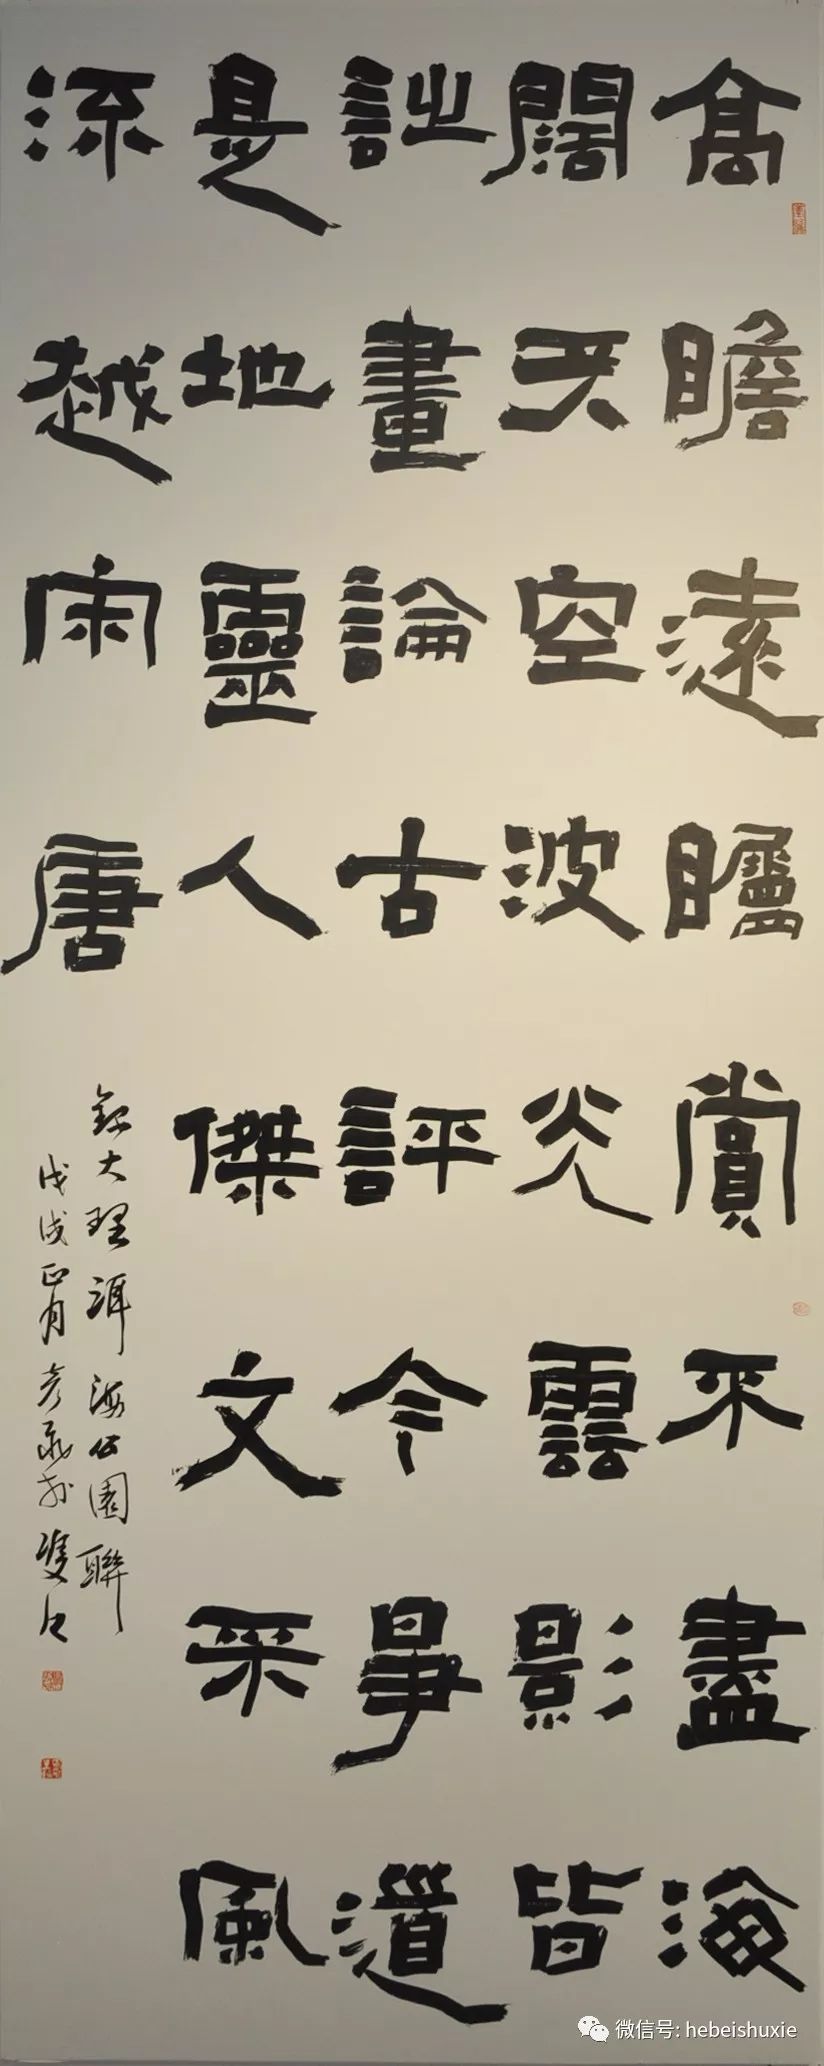 高瞻遠矚賞不盡海
闊天空波光雲影皆
詩畫論古評今事道
是地靈人傑文采風
流越宋唐
錄大理洱海公園聯
戊戌正月
微信号: hebeishuxie